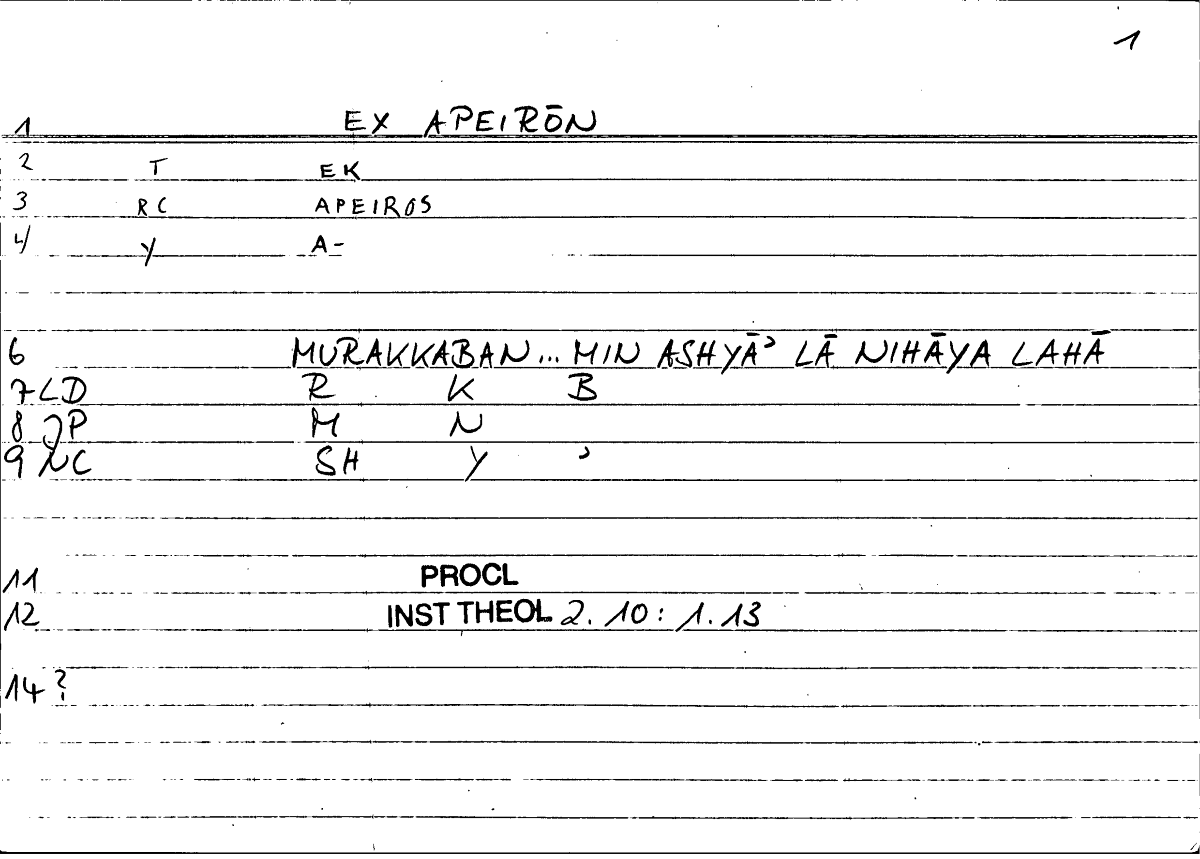 1
1 EX APEIRŌN
2 T EK
3 RC APEIROS
4 Y A-
6 MURAKKABAN... MIN ASHYĀʾ LĀ NIHĀYA LAHĀ
7 LD R K B
8 JP M N
9 NC SH Y ʾ
11 PROCL
12 INST THEOL 2. 10: 1. 13
14 ?